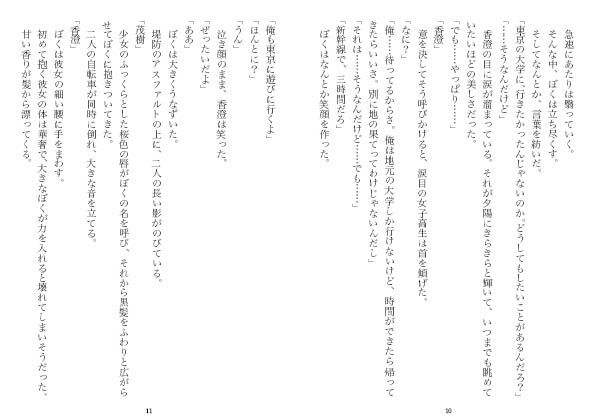 急速にあたりは翳っていく。
そんな中、ぼくは立ち尽くす。
そしてなんとか、言葉を紡いだ。
「東京の大学に、行きたかったんじゃないのか。どうしてもしたいことがあるんだろ？」
「……そうなんだけど」
香澄の目に涙が溜まっている。それが夕陽にきらきらと輝いて、いつまでも眺めて
いたいほどの美しさだった。
「でも……やっぱり……」
「香澄」
意を決してそう呼びかけると、涙目の女子高生は首を傾げた。
「なに？」
「俺……待ってるからさ。俺は地元の大学しか行けないけど、時間ができたら帰って
きたらいいさ。別に地の果てってわけじゃないんだし」
「それは……そうなんだけど……でも……」
「新幹線で、三時間だろ」
ぼくはなんとか笑顔を作った。
10
「俺も東京に遊びに行くよ」
「ほんとに？」
「うん」
泣き顔のまま、香澄は笑った。
「ぜったいだよ」
「ああ」
ぼくは大きくうなずいた。
堤防のアスファルトの上に、二人の長い影がのびている。
「茂樹」
少女のふっくらとした桜色の唇がぼくの名を呼び、それから黒髪をふわりと広がら
せてぼくに抱きついてきた。
二人の自転車が同時に倒れ、大きな音を立てる。
「香澄」
ぼくは彼女の細い腰に手をまわす。
初めて抱く彼女の体は華奢で、大きなぼくが力を入れると壊れてしまいそうだった。
甘い香りが髪から漂ってくる。
11